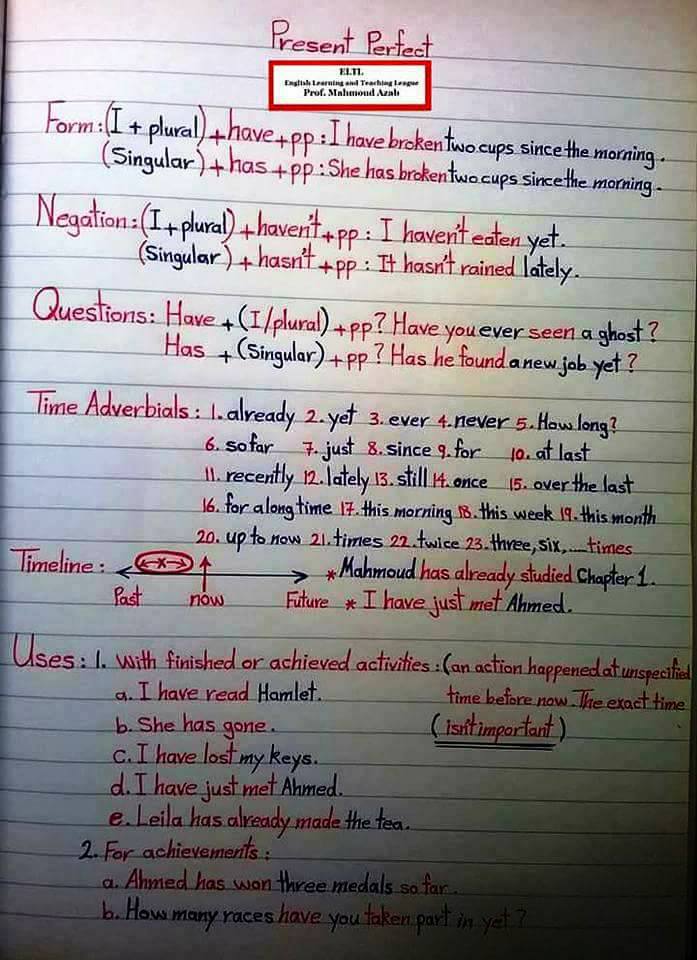 Present Perfect
ELTL
English Learning and Teaching League
Prof. Mahmoud Azab
Form: (I + plural) + have + pp : I have broken two cups since the morning.
(Singular) + has + pp : She has broken two cups since the morning.
Negation: (I + plural) + haven't + pp : I haven't eaten yet.
(Singular) + hasn't + pp : It hasn't rained lately.
Questions: Have + (I/plural) + pp? Have you ever seen a ghost?
Has + (Singular) + pp? Has he found a new job yet?
Time Adverbials: 1. already 2. yet 3. ever 4. never 5. How long?
6. so far 7. just 8. since 9. for 10. at last
11. recently 12. lately 13. still 14. once 15. over the last
16. for a long time 17. this morning 18. this week 19. this month
20. up to now 21. times 22. twice 23. three, six,.....times
Timeline: * Mahmoud has already studied Chapter 1.
Past now Future * I have just met Ahmed.
Uses: 1. with finished or achieved activities: (an action happened at unspecified
a. I have read Hamlet. time before now. The exact time
b. She has gone. (isn't important)
c. I have lost my keys.
d. I have just met Ahmed.
e. Leila has already made the tea.
2. For achievements:
a. Ahmed has won three medals so far.
b. How many races have you taken part in yet?